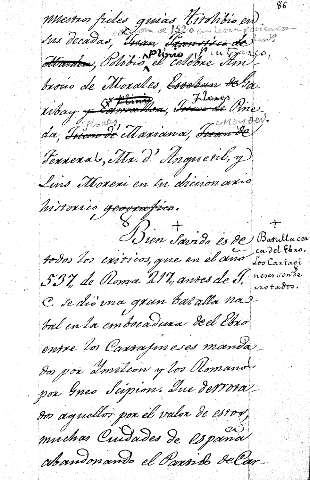 86
nuestros fieles guias Titolibio en
sus decadas, Juan Francisco de
Plinio
Polibio, el celebre Am-
brocio de Morales, Esteban de Ga-
ribay
Florez
de Pine-
da, de Mariana, Juan de
Ferreras, Mr. d'. Anquetil, y
Luis Moreri en su diccionario
historico geografico.
Bien Savido es de
todos los criticos, que en el año
537 de Roma 217, antes de J.
C. se dió vna gran batalla na-
bal en la embocadura del Ebro
entre los Cartagineses manda-
dos por Ymilcon y los Romanos
por Gneo Scipion. Que derrota-
dos aquellos por el valor de estos,
muchas Ciudades de españa
abandonando el Partido de Car-
Batalla cer-
ca del Ebro.
Los Cartagi
neses son de
rrotados.